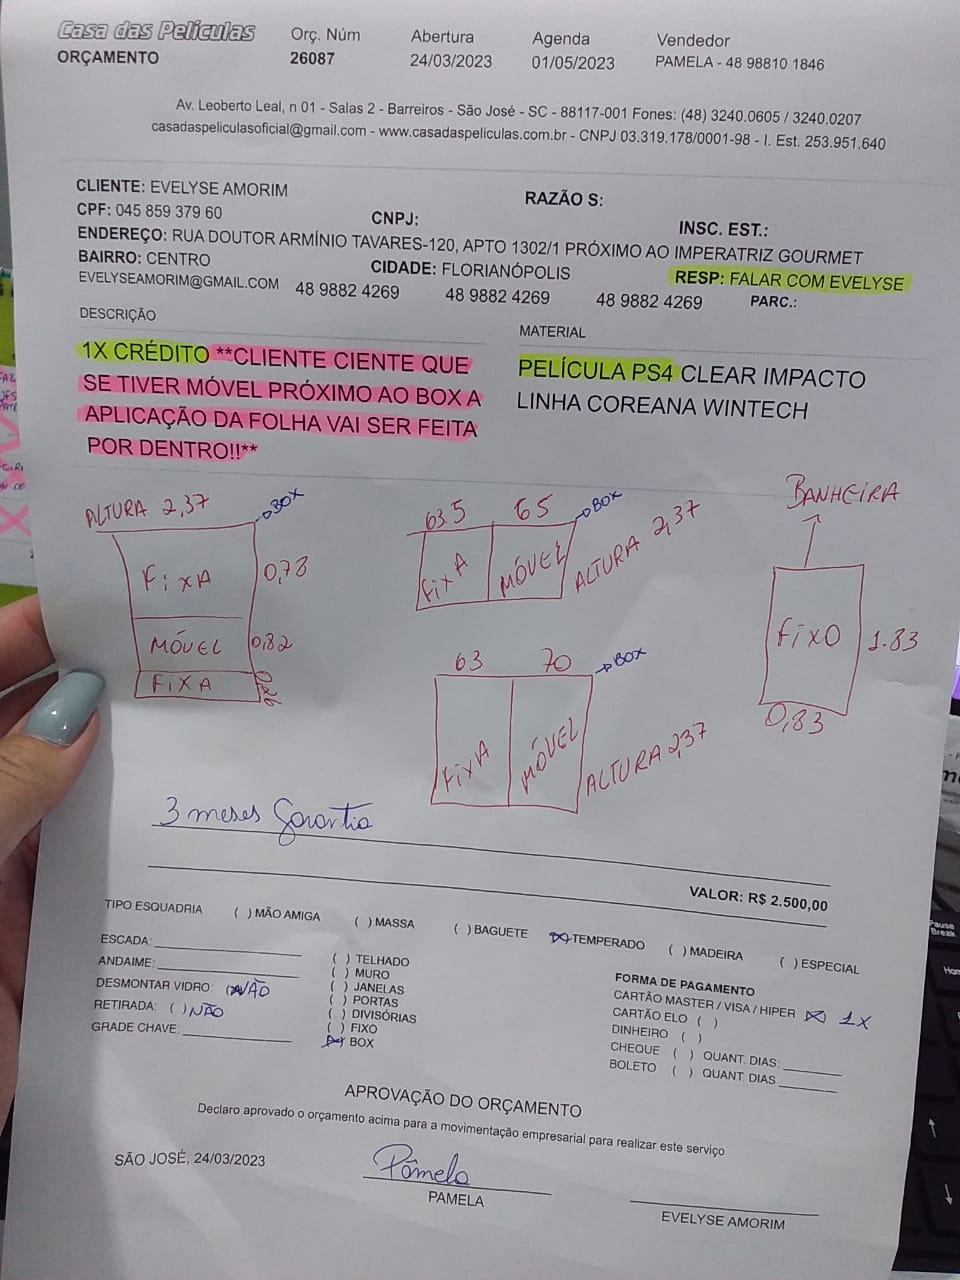 Casa das Películas
ORÇAMENTO
Orç. Núm
26087
Abertura
24/03/2023
Agenda
01/05/2023
Vendedor
PAMELA - 48 98810 1846
Av. Leoberto Leal, n 01 - Salas 2 - Barreiros - São José - SC - 88117-001 Fones: (48) 3240.0605 / 3240.0207
casadaspeliculasoficial@gmail.com - www.casadaspeliculas.com.br - CNPJ 03.319.178/0001-98 - I. Est. 253.951.640
CLIENTE: EVELYSE AMORIM
RAZÃO S:
CPF: 045 859 379 60
CNPJ:
INSC. EST.:
ENDEREÇO: RUA DOUTOR ARMÍNIO TAVARES-120, APTO 1302/1 PRÓXIMO AO IMPERATRIZ GOURMET
BAIRRO: CENTRO
CIDADE: FLORIANÓPOLIS
RESP: FALAR COM EVELYSE
EVELYSEAMORIM@GMAIL.COM
48 9882 4269
48 9882 4269
48 9882 4269
PARC.:
DESCRIÇÃO
MATERIAL
1X CRÉDITO **CLIENTE CIENTE QUE
SE TIVER MÓVEL PRÓXIMO AO BOX A
APLICAÇÃO DA FOLHA VAI SER FEITA
POR DENTRO!!**
PELÍCULA PS4 CLEAR IMPACTO
LINHA COREANA WINTECH
ALTURA 2,37
BOX
FIXA
0,78
MÓVEL
0,82
FIXA
63.5
65
BOX
FIXA
MÓVEL
ALTURA 2,37
BANHEIRA
FIXO
1.83
0,83
63
70
BOX
FIXA
MÓVEL
ALTURA 2,37
3 meses Garantia
VALOR: R$ 2.500,00
TIPO ESQUADRIA
( ) MÃO AMIGA
( ) MASSA
( ) BAGUETE
(X) TEMPERADO
( ) MADEIRA
( ) ESPECIAL
ESCADA:
ANDAIME:
DESMONTAR VIDRO: ( ) NÃO
RETIRADA: ( ) NÃO
GRADE CHAVE:
( ) TELHADO
( ) MURO
( ) JANELAS
( ) PORTAS
( ) DIVISÓRIAS
( ) FIXO
(X) BOX
FORMA DE PAGAMENTO
CARTÃO MASTER / VISA / HIPER (X) 1X
CARTÃO ELO ( )
DINHEIRO ( )
CHEQUE ( ) QUANT. DIAS:
BOLETO ( ) QUANT. DIAS
APROVAÇÃO DO ORÇAMENTO
Declaro aprovado o orçamento acima para a movimentação empresarial para realizar este serviço
SÃO JOSÉ, 24/03/2023
Pâmela
PAMELA
EVELYSE AMORIM
Pause
Break